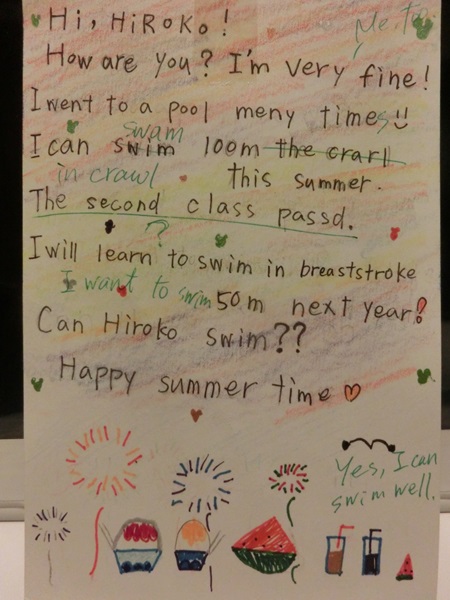 Hi, HiROKo!
Me, too
How are you? I'm very fine!
I went to a pool meny times
swam
I can swim 100m the crarll
in crawl this summer.
The second class passd.
?
I will learn to swim in breaststroke
I want to swim 50m next year!
Can Hiroko swim??
Happy summer time
Yes, I can
swim well.